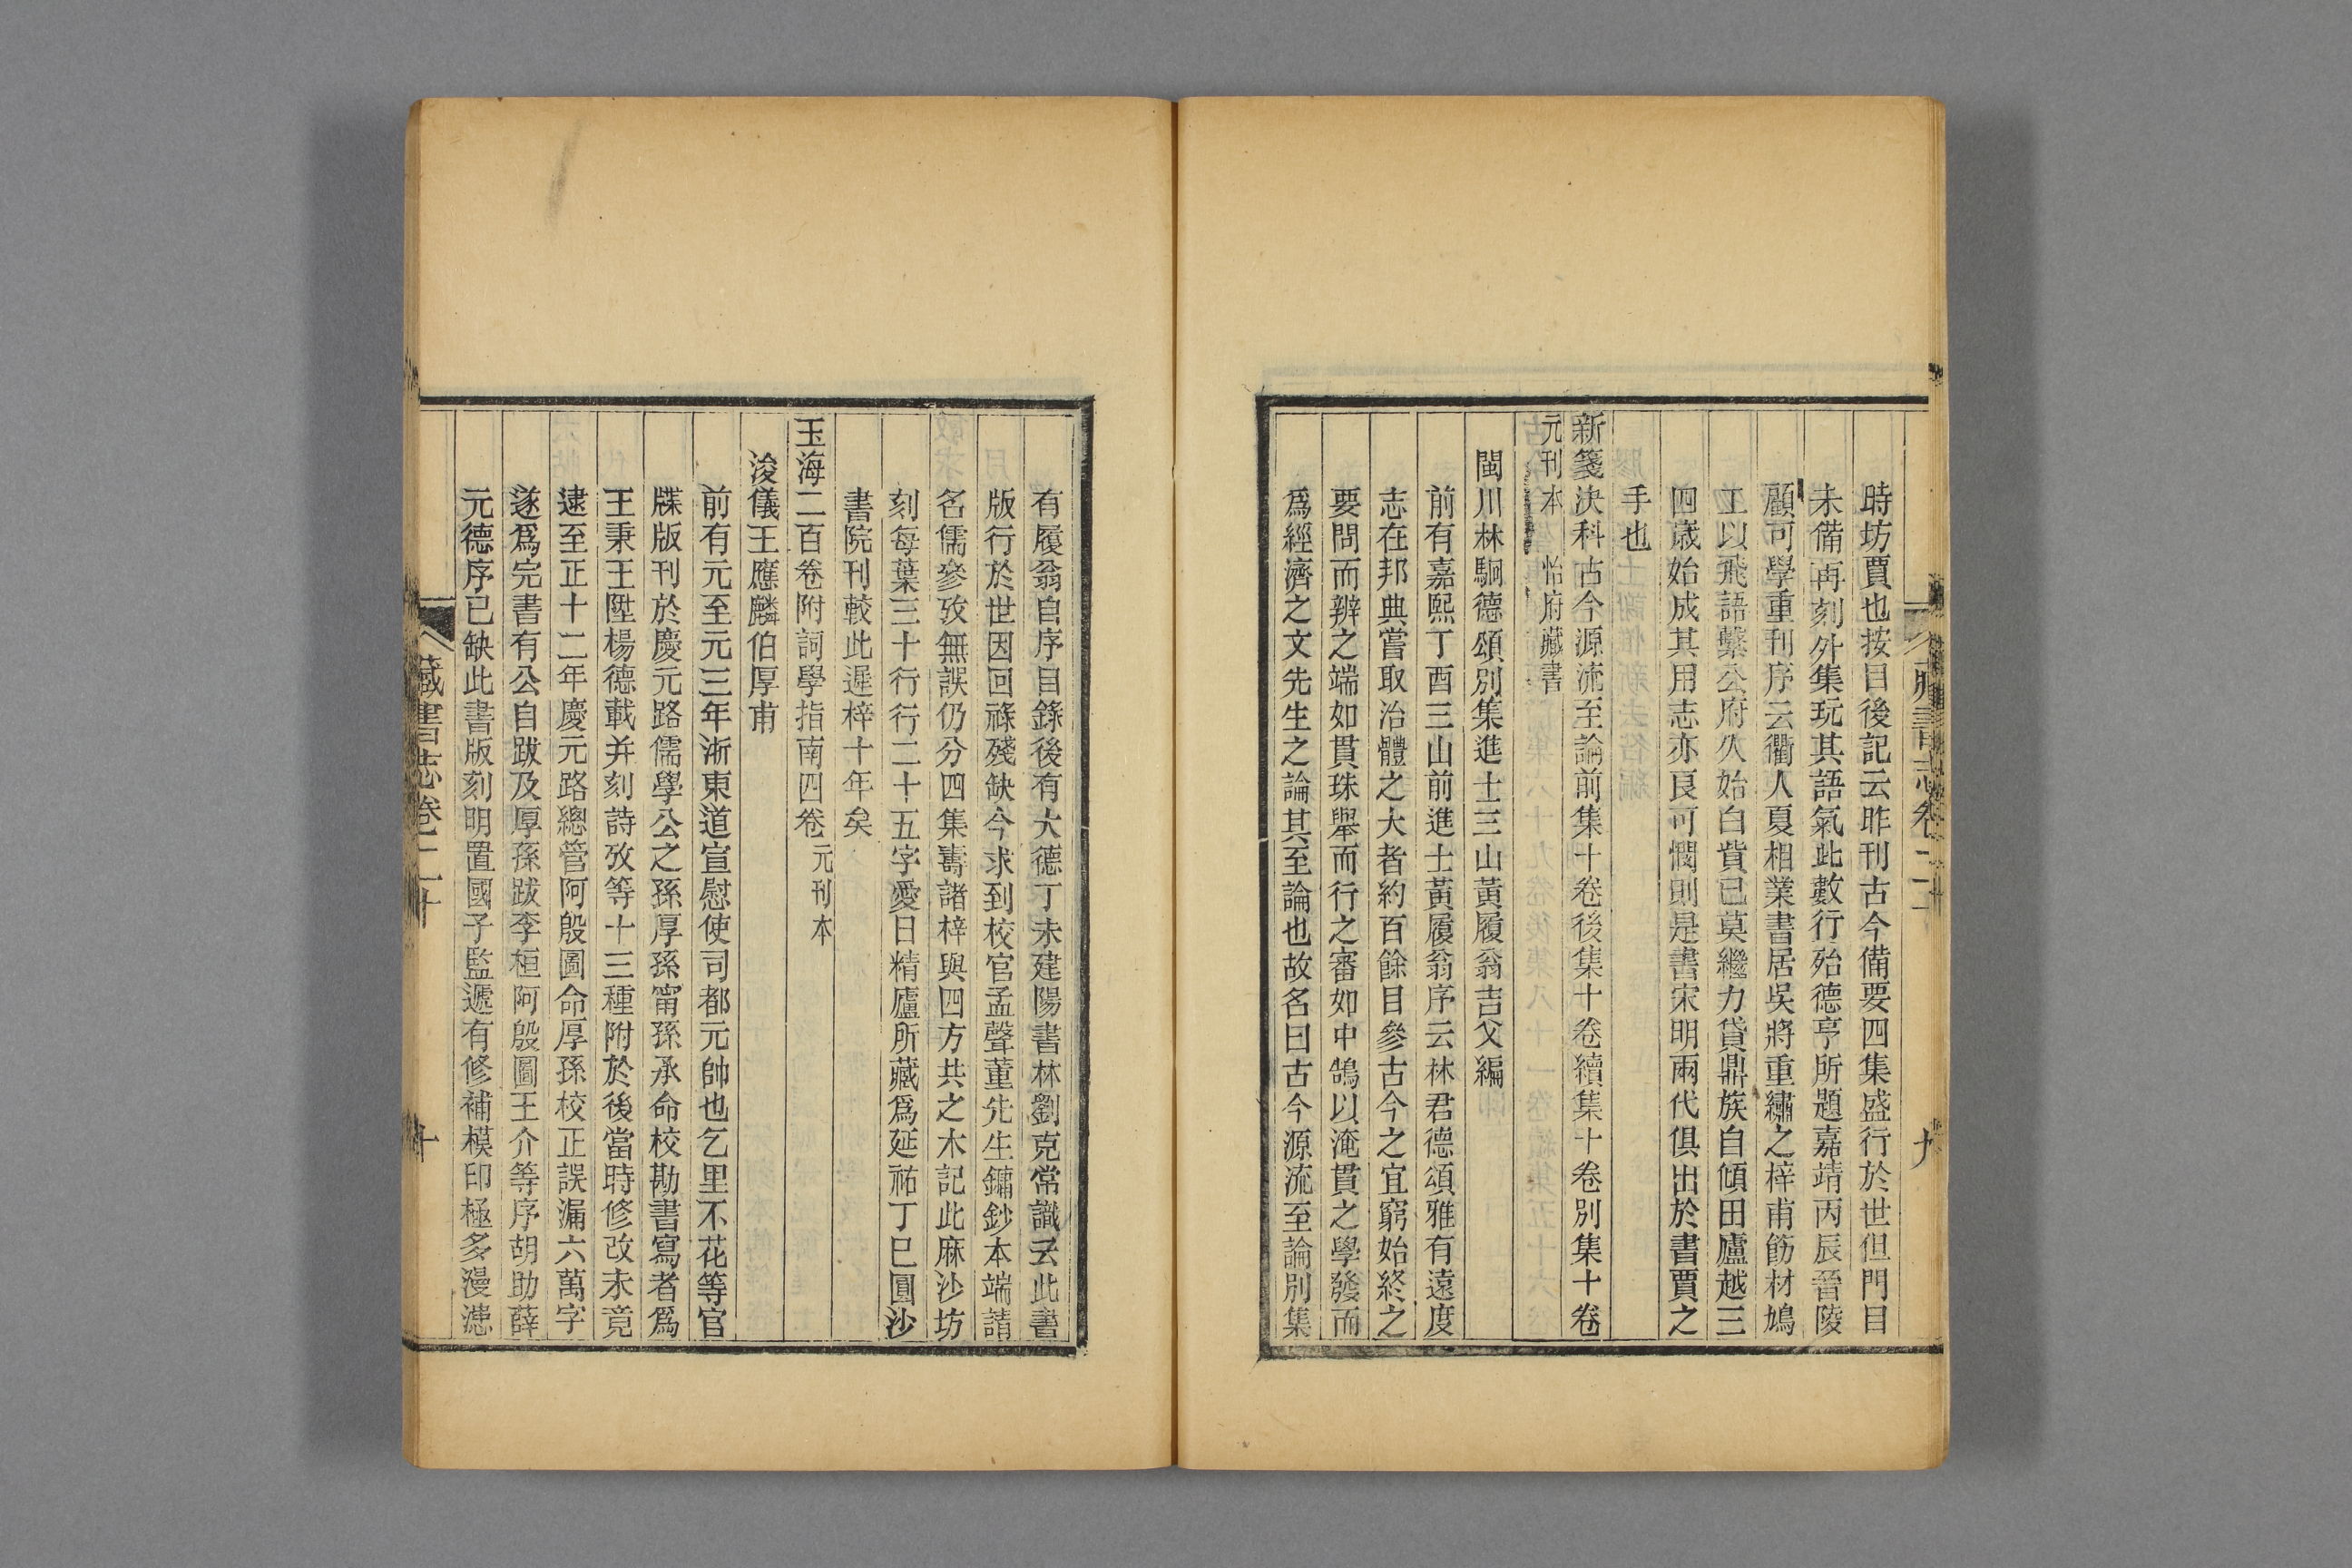 時坊賈也按目後記云昨刊古今備要四集盛行於世但門目
未備再刻外集玩其語氣此數行殆德亨所題嘉靖丙辰晉陵
顧可學重刊序云衢人夏相業書居吳將重繡之梓甫飭材鳩
工以飛語繫公府久始白貲已莫繼力貸鼎族自傾田廬越三
四歲始成其用志亦良可憫則是書宋明兩代俱出於書賈之
手也
新箋決科古今源流至論前集十卷後集十卷續集十卷別集十卷
元刊本 怡府藏書
閩川林駉德頌別集進士三山黃履翁吉父編
前有嘉熙丁酉三山前進士黃履翁序云林君德頌雅有遠度
志在邦典嘗取治體之大者約百餘目參古今之宜窮始終之
要問而辨之端如貫珠舉而行之審如中鵠以淹貫之學發而
爲經濟之文先生之論其至論也故名曰古今源流至論別集
有履翁自序目錄後有大德丁未建陽書林劉克常識云此書
版行於世因回祿殘缺今求到校官孟聲董先生鏞鈔本端請
名儒參攷無誤仍分四集壽諸梓與四方共之木記此麻沙坊
刻每葉三十行行二十五字愛日精廬所藏爲延祐丁巳圓沙
書院刊較此遲梓十年矣
玉海二百卷附詞學指南四卷 元刊本
浚儀王應麟伯厚甫
前有元至元三年浙東道宣慰使司都元帥也乞里不花等官
牒版刊於慶元路儒學公之孫厚孫甯孫承命校勘書寫者爲
王秉王陞楊德載并刻詩攷等十三種附於後當時修改未竟
逮至正十二年慶元路總管阿殷圖命厚孫校正誤漏六萬字
遂爲完書有公自跋及厚孫跋李桓阿殷圖王介等序胡助薛
元德序已缺此書版刻明置國子監遞有修補模印極多漫漶
藏書志卷二十
十